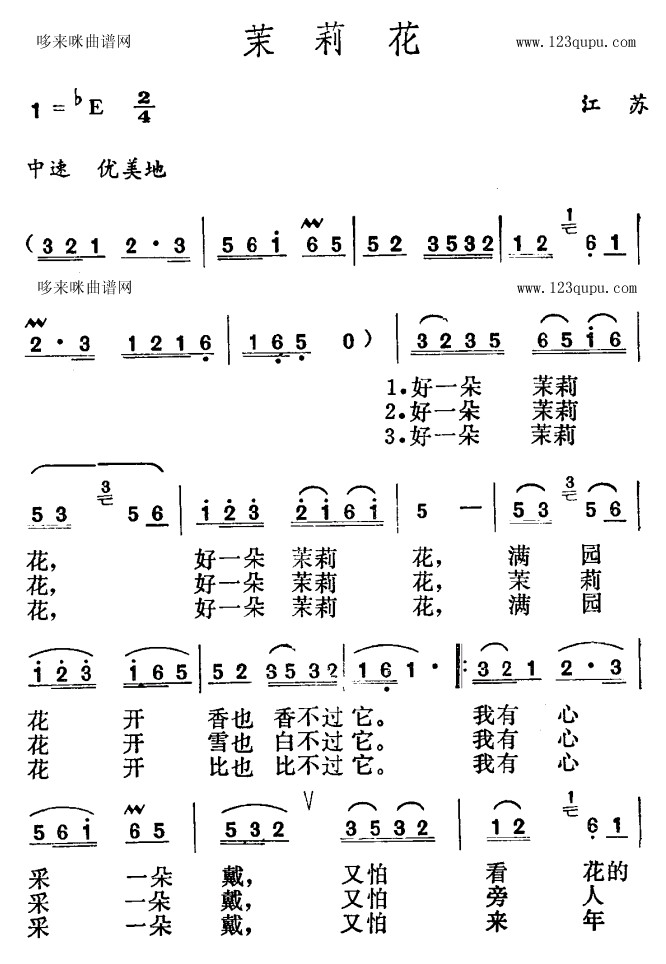 哆来咪曲谱网 茉莉花 www.123qupu.com
1=♭E 2/4 江苏
中速 优美地
(321 2·3 | 56i 65 | 52 3532 | 12 1 61 |
哆来咪曲谱网 www.123qupu.com
2·3 1216 | 165 0) | 3235 65i6 |
1.好一朵 茉莉
2.好一朵 茉莉
3.好一朵 茉莉
53 3 56 | i23 2i6i | 5 — | 53 3 56 |
花, 好一朵茉莉 花, 满园
花, 好一朵茉莉 花, 茉莉
花, 好一朵茉莉 花, 满园
i23 i65 | 52 3532 | 161· :321 2·3 |
花 开 香也 香不过它。 我有 心
花 开 雪也 白不过它。 我有 心
花 开 比也 比不过它。 我有 心
56i 65 | 532 V 3532 | 12 1 61 |
采 一朵 戴, 又怕 看 花的
采 一朵 戴, 又怕 旁 人
采 一朵 戴, 又怕 来 年